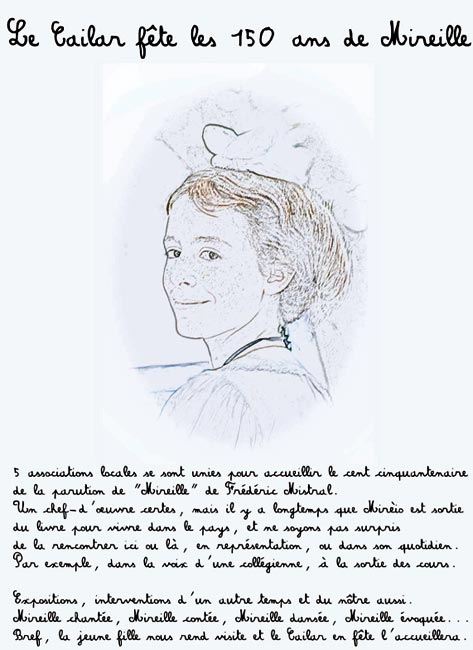 Le Cailar fête les 150 ans de Mireille
5 associations locales se sont unies pour accueillir le cent cinquantenaire
de la parution de "Mireille" de Frédéric Mistral.
Un chef-d'œuvre certes, mais il y a longtemps que Mirèio est sortie
du livre pour vivre dans le pays, et ne soyons pas surpris
de la rencontrer ici ou là, en représentation, ou dans son quotidien.
Par exemple, dans la voix d'une collégienne, à la sortie des cours.
Expositions, interventions d'un autre temps et du nôtre aussi.
Mireille chantée, Mireille contée, Mireille dansée, Mireille évoquée...
Bref, la jeune fille nous rend visite et le Cailar en fête l'accueillera.